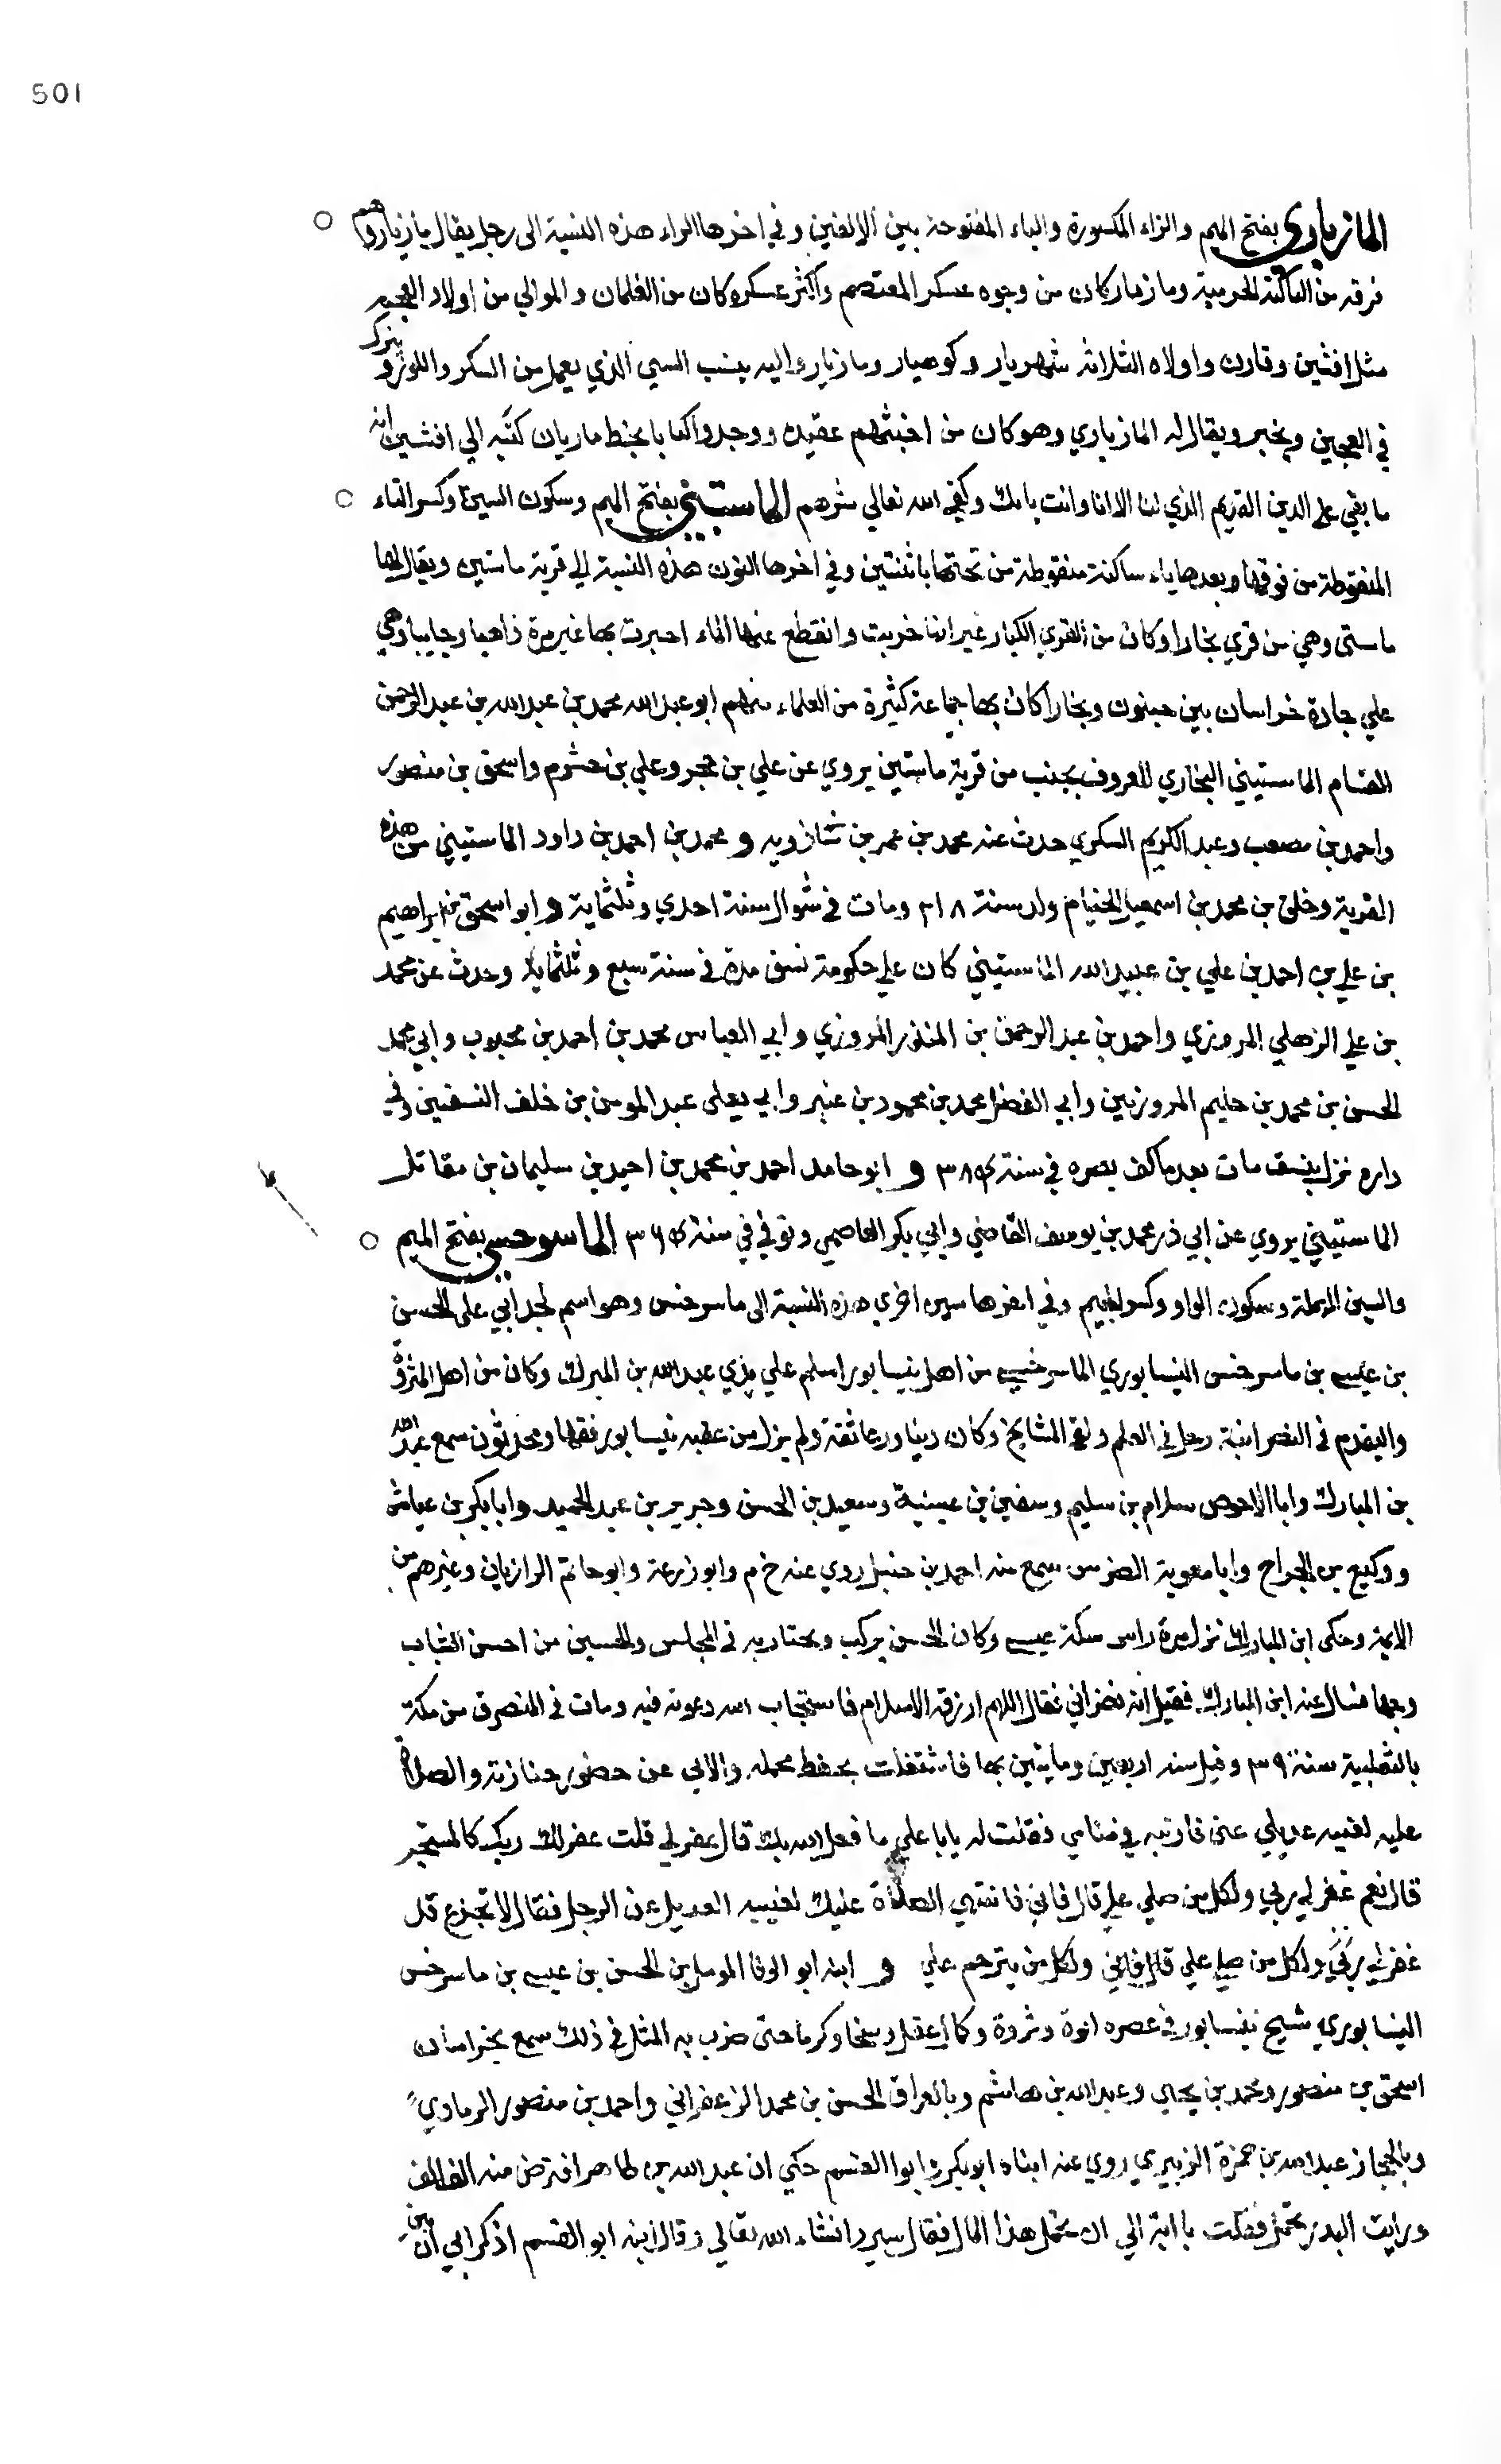 501
المازياري بفتح الميم والزاء المكسورة والياء المفتوحة بين الالفين وفي اخرها الراء هذه النسبة الى رجل يقال مازيار وهم
فرقة من البابكية الخرمية ومازيار كان من وجوه عسكر المعتصم واكثر عسكره كان من الغلمان والموالي من اولاد العجم
مثل افشين وقارن واولاه الثلاثه شهريار وكوهيار ومازيار واليه ينسب السي الذي يعمل من السكر واللوز و يترك
في العجين ويخبر ويقال له المازياري وهو كان من اخبثهم عقيده ووجدوا كتابا بخط ماريان كتبه الي افشين انه
ما بقي على الدين القديم الذي لنا الا انا وانت بابك وكفى الله تعالي شرهم الماستيني بفتح الميم وسكون السين وكسر التاء
المنقوطة من فوقها وبعدها ياء ساكنة منقوطة من تحتها باثنتين وفي اخرها النون هذه النسبة الى قرية ماستين ويقال لها
ماستى وهي من قري بخارا وكان من القري الكبار غير انها خربت وانقطع عنها الماء اجبرت بها غير مرة ذاهبا وجايبا وهي
علي جادة خراسان بين حبنون وبخارا كان بها جماعة كثيرة من العلماء منهم ابو عبد الله محمد بن عبد الله بن عبد الرحمن
القسام الماستيني البخاري المعروف بجنب من قرية ماستين يروي عن علي بن حجر وعلي بن خشرم واسحق بن منصور
واحمد بن مصعب وعبد الكريم السكري حدث عنه محمد بن عمر بن شاذويه و محمد بن احمد بن داود الماستيني من هذه
القرية وخلف بن محمد بن اسمعيل الخيام ولد سنة ٢١٨ ومات في شوال سنة احدي وثلثماية و ابو اسحق ابراهيم
بن علي بن احمد بن علي بن عبيد الله الماستيني كان علي حكومة نسف مدة في سنة سبع وثلثماية وحدث عن محمد
بن علي الزهلي المروزي واحمد بن عبد الرحمن بن المنذر المروزي وابي العباس محمد بن احمد بن محبوب وابي محمد
الحسن بن محمد بن حليم المروزيين وابي الفضل محمد بن محمود بن عنبر وابي يعلى عبد المومن بن خلف النسفيين وفي
داره نزل بنسف مات بعد ما كف بصره في سنة ٣٨٥ و ابو حامد احمد بن محمد بن احيد بن سليمان بن مقاتل
الماستيني يروي عن ابي ذر محمد بن يوسف القاضي وابي بكر العاصمي وتوفي في سنة ٣٦٥ الماسرجسي بفتح الميم
والسين المهملة وسكون الواو وكسر الجيم وفي اخرها سين اخري هذه النسبة الى ماسرجس وهو اسم لجد ابي علي الحسن
بن عيسى بن ماسرجس النيسابوري الماسرجسي من اهل نيسابور اسلم علي يدي عبد الله بن المبرك وكان من اهل الثروة
والتقدم في النصرانية رحل في العلم ولقي المشايخ وكان دينا ورعا ثقة ولم يزل من عقبه نيسابور فقها ومحدثون سمع عبد الله
بن المبارك وابا الاحوص سلام بن سليم وسفين بن عيينة وسعيد بن الحسن وجرير بن عبد الحميد وابا بكر بن عياش
ووكيع بن الجراح وابا معوية الضرير سمع منه احمد بن حنبل روي عنه خ م وابو زرعة وابو حاتم الرازيان وغيرهم من
الايمة وحكى ابن المبارك نزل مرة راس سكة عيسى وكان الحسن يركب ويجتاز به في المجلس والحسين من احسن الشباب
وجها فسال عنه ابن المبارك فقيل انه نصراني فقال اللهم ارزقه الاسلام فاستجاب الله دعوته فيه ومات في المنصرف من مكة
بالثعلبية سنة ٣٩ وقيل سنه اربعين ومايتين بها فاشتغلت بحفظ محمله والالي عن حضور جنازته والصلاة
عليه لغيبه عديلي عني فاريته في منامي فقلت له يابا علي ما فعل الله بك قال غفر لي قلت غفر لك ربك كالمستخبر
قال نعم غفر لي ربي ولكل من صلي علي قال فاني فانتني الصلاة عليك لغيبه العديل عن الرحل فقال لا تجزع قد
غفر لي ربي ولكل من صلي علي قال فاني ولكل من يترحم علي و ابنه ابو الوفا المومل بن الحسن بن عيسى بن ماسرجس
النيسابوري شيخ نيسابور في عصره ابوة وثروة وكان اعقل وسخا وكرما حتى ضرب به المثل في ذلك سمع بخراسان
اسحق بن منصور ومحمد بن يحيى وعبد الله بن هاشم وبالعراق الحسن بن محمد الزعفراني واحمد بن منصور الرمادي
وبالحجاز عبد الله بن حمزة الزبيري روي عنه ابناه ابو بكر وابوا القسم حكي ان عبد الله بن طاهر اقترض منه الف الف
ورايت البدر تحمل فقلت يا ابة الي اين تحمل هذا المال فقال سيرد انشاء الله تعالي وقال ابنه ابو القسم اذكر ابي